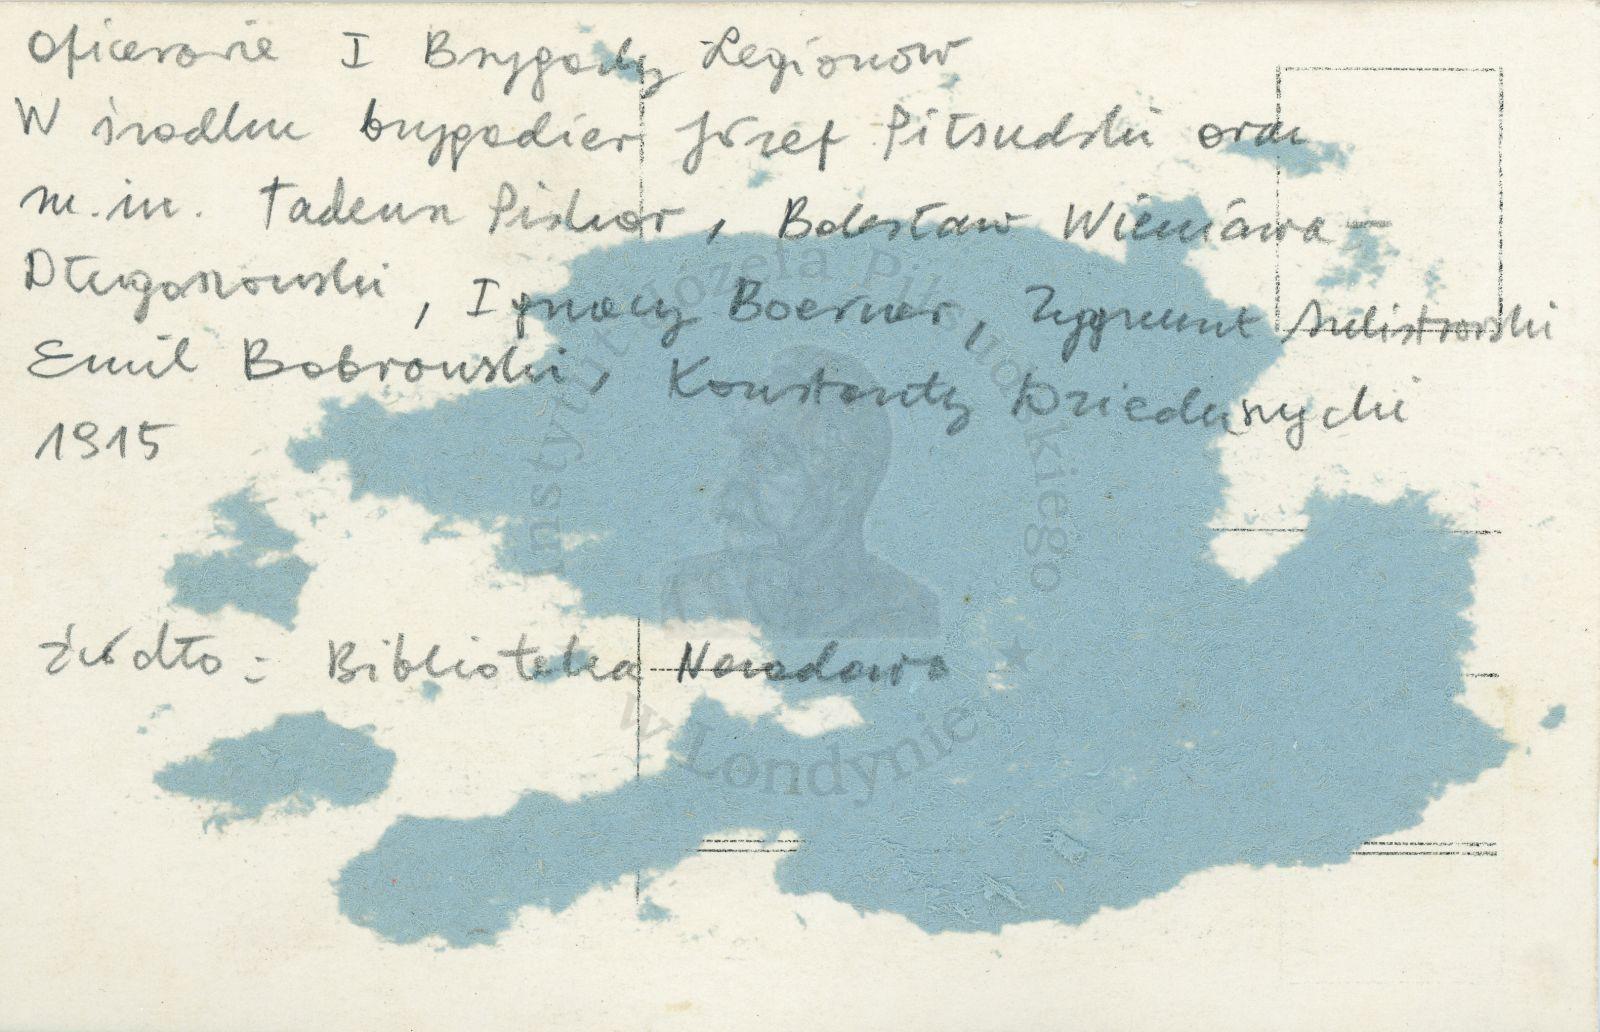 Oficerowie I Brygady Legionów
W środku brygadier Józef Piłsudski oraz
m.in. Tadeusz Piskor, Bolesław Wieniawa-
Długoszowski, Ignacy Boerner, Zygmunt Sulistrowski
Emil Bobrowski, Konstanty Dzieduszycki
1915
źródło: Biblioteka Narodowa
Instytut Józefa Piłsudskiego
w Londynie